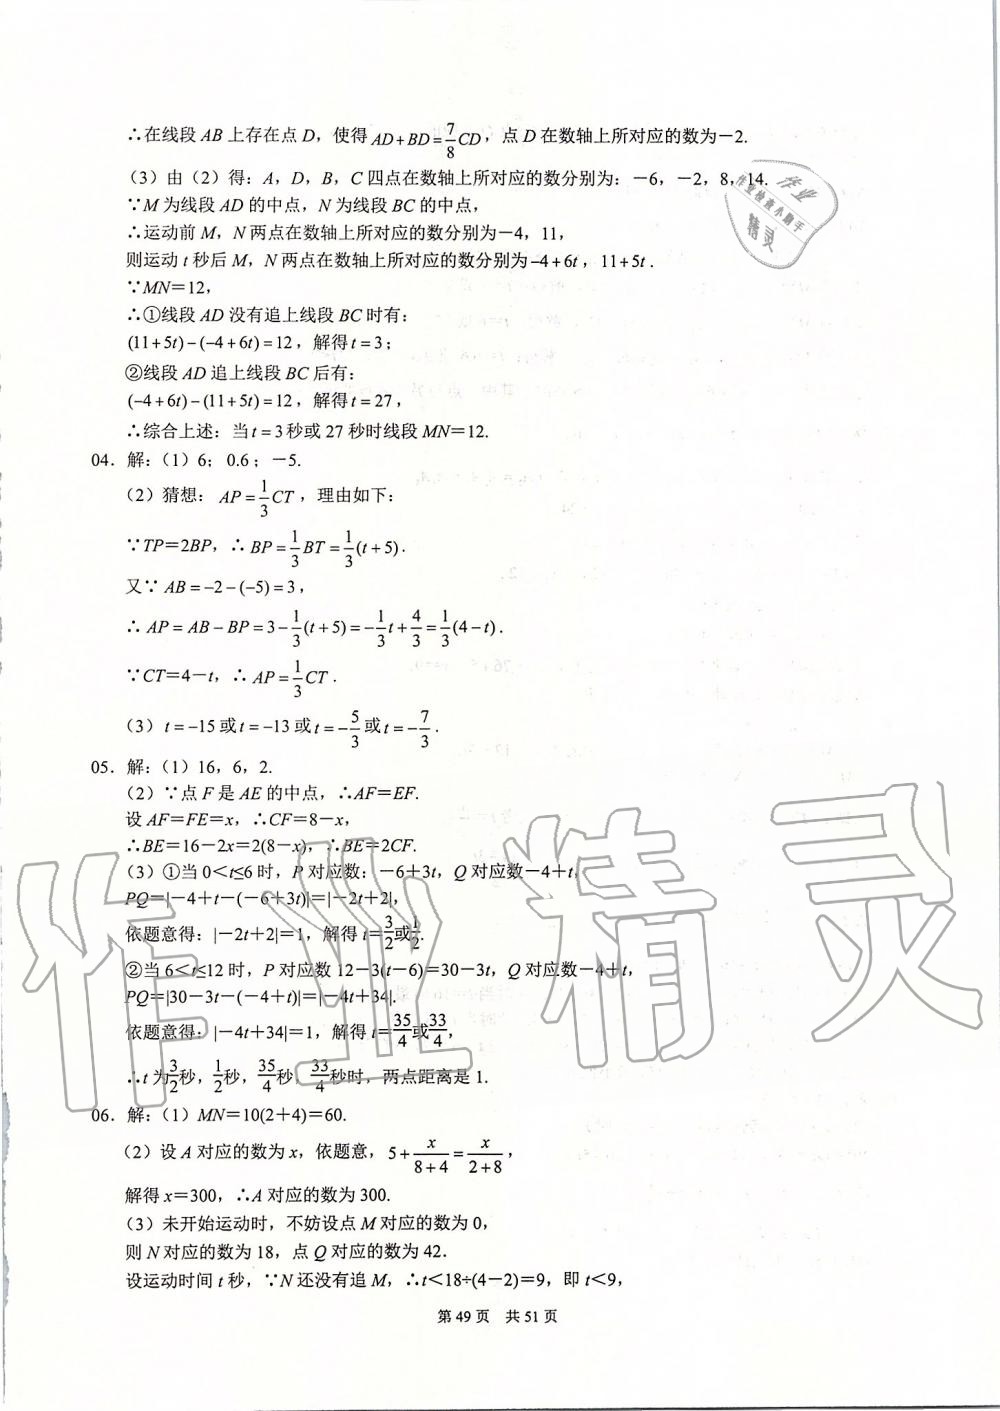 ∴在线段 AB 上存在点 D，使得 AD+BD=7/8CD，点 D 在数轴上所对应的数为－2.
（3）由（2）得：A，D，B，C 四点在数轴上所对应的数分别为：－6，－2，8，14.
∵M 为线段 AD 的中点，N 为线段 BC 的中点，
∴运动前 M，N 两点在数轴上所对应的数分别为－4，11，
则运动 t 秒后 M，N 两点在数轴上所对应的数分别为－4+6t，11+5t .
∵MN＝12，
∴①线段 AD 没有追上线段 BC 时有：
(11+5t)－(－4+6t)＝12，解得 t＝3；
②线段 AD 追上线段 BC 后有：
(－4+6t)－(11+5t)＝12，解得 t＝27，
∴综合上述：当 t＝3 秒或 27 秒时线段 MN＝12.
04．解：（1）6； 0.6； －5.
（2）猜想： AP＝1/3CT，理由如下：
∵TP＝2BP，∴ BP＝1/3BT＝1/3(t+5) .
又∵ AB＝－2－(－5)＝3，
∴ AP＝AB－BP＝3－1/3(t+5)＝－1/3t+4/3＝1/3(4－t) .
∵CT＝4－t，∴ AP＝1/3CT .
（3）t＝－15 或 t＝－13 或 t＝－5/3 或 t＝－7/3 .
05．解：（1）16，6，2.
（2）∵点 F 是 AE 的中点，∴AF＝EF.
设 AF＝FE＝x，∴CF＝8－x，
∴BE＝16－2x＝2(8－x)，∴BE＝2CF.
（3）①当 0＜t≤6 时，P 对应数：－6+3t，Q 对应数－4+t，
PQ＝|－4＋t－(－6＋3t)|＝|－2t+2|，
依题意得：|－2t＋2|＝1，解得 t＝3/2或1/2.
②当 6＜t≤12 时，P 对应数 12－3(t－6)＝30－3t，Q 对应数－4＋t，
PQ＝|30－3t－(－4＋t)|＝|－4t＋34|.
依题意得：|－4t＋34|＝1，解得 t＝35/4或33/4，
∴t 为3/2秒，1/2秒，35/4秒，33/4秒时，两点距离是 1.
06．解：（1）MN＝10(2＋4)＝60.
（2）设 A 对应的数为 x，依题意，5+x/(8+4)＝x/(2+8)，
解得 x＝300，∴A 对应的数为 300.
（3）未开始运动时，不妨设点 M 对应的数为 0，
则 N 对应的数为 18，点 Q 对应的数为 42．
设运动时间 t 秒，∵N 还没有追 M，∴t＜18÷(4－2)＝9，即 t＜9，
第 49 页 共 51 页
作业
作业检查小助手
精灵
作业精灵